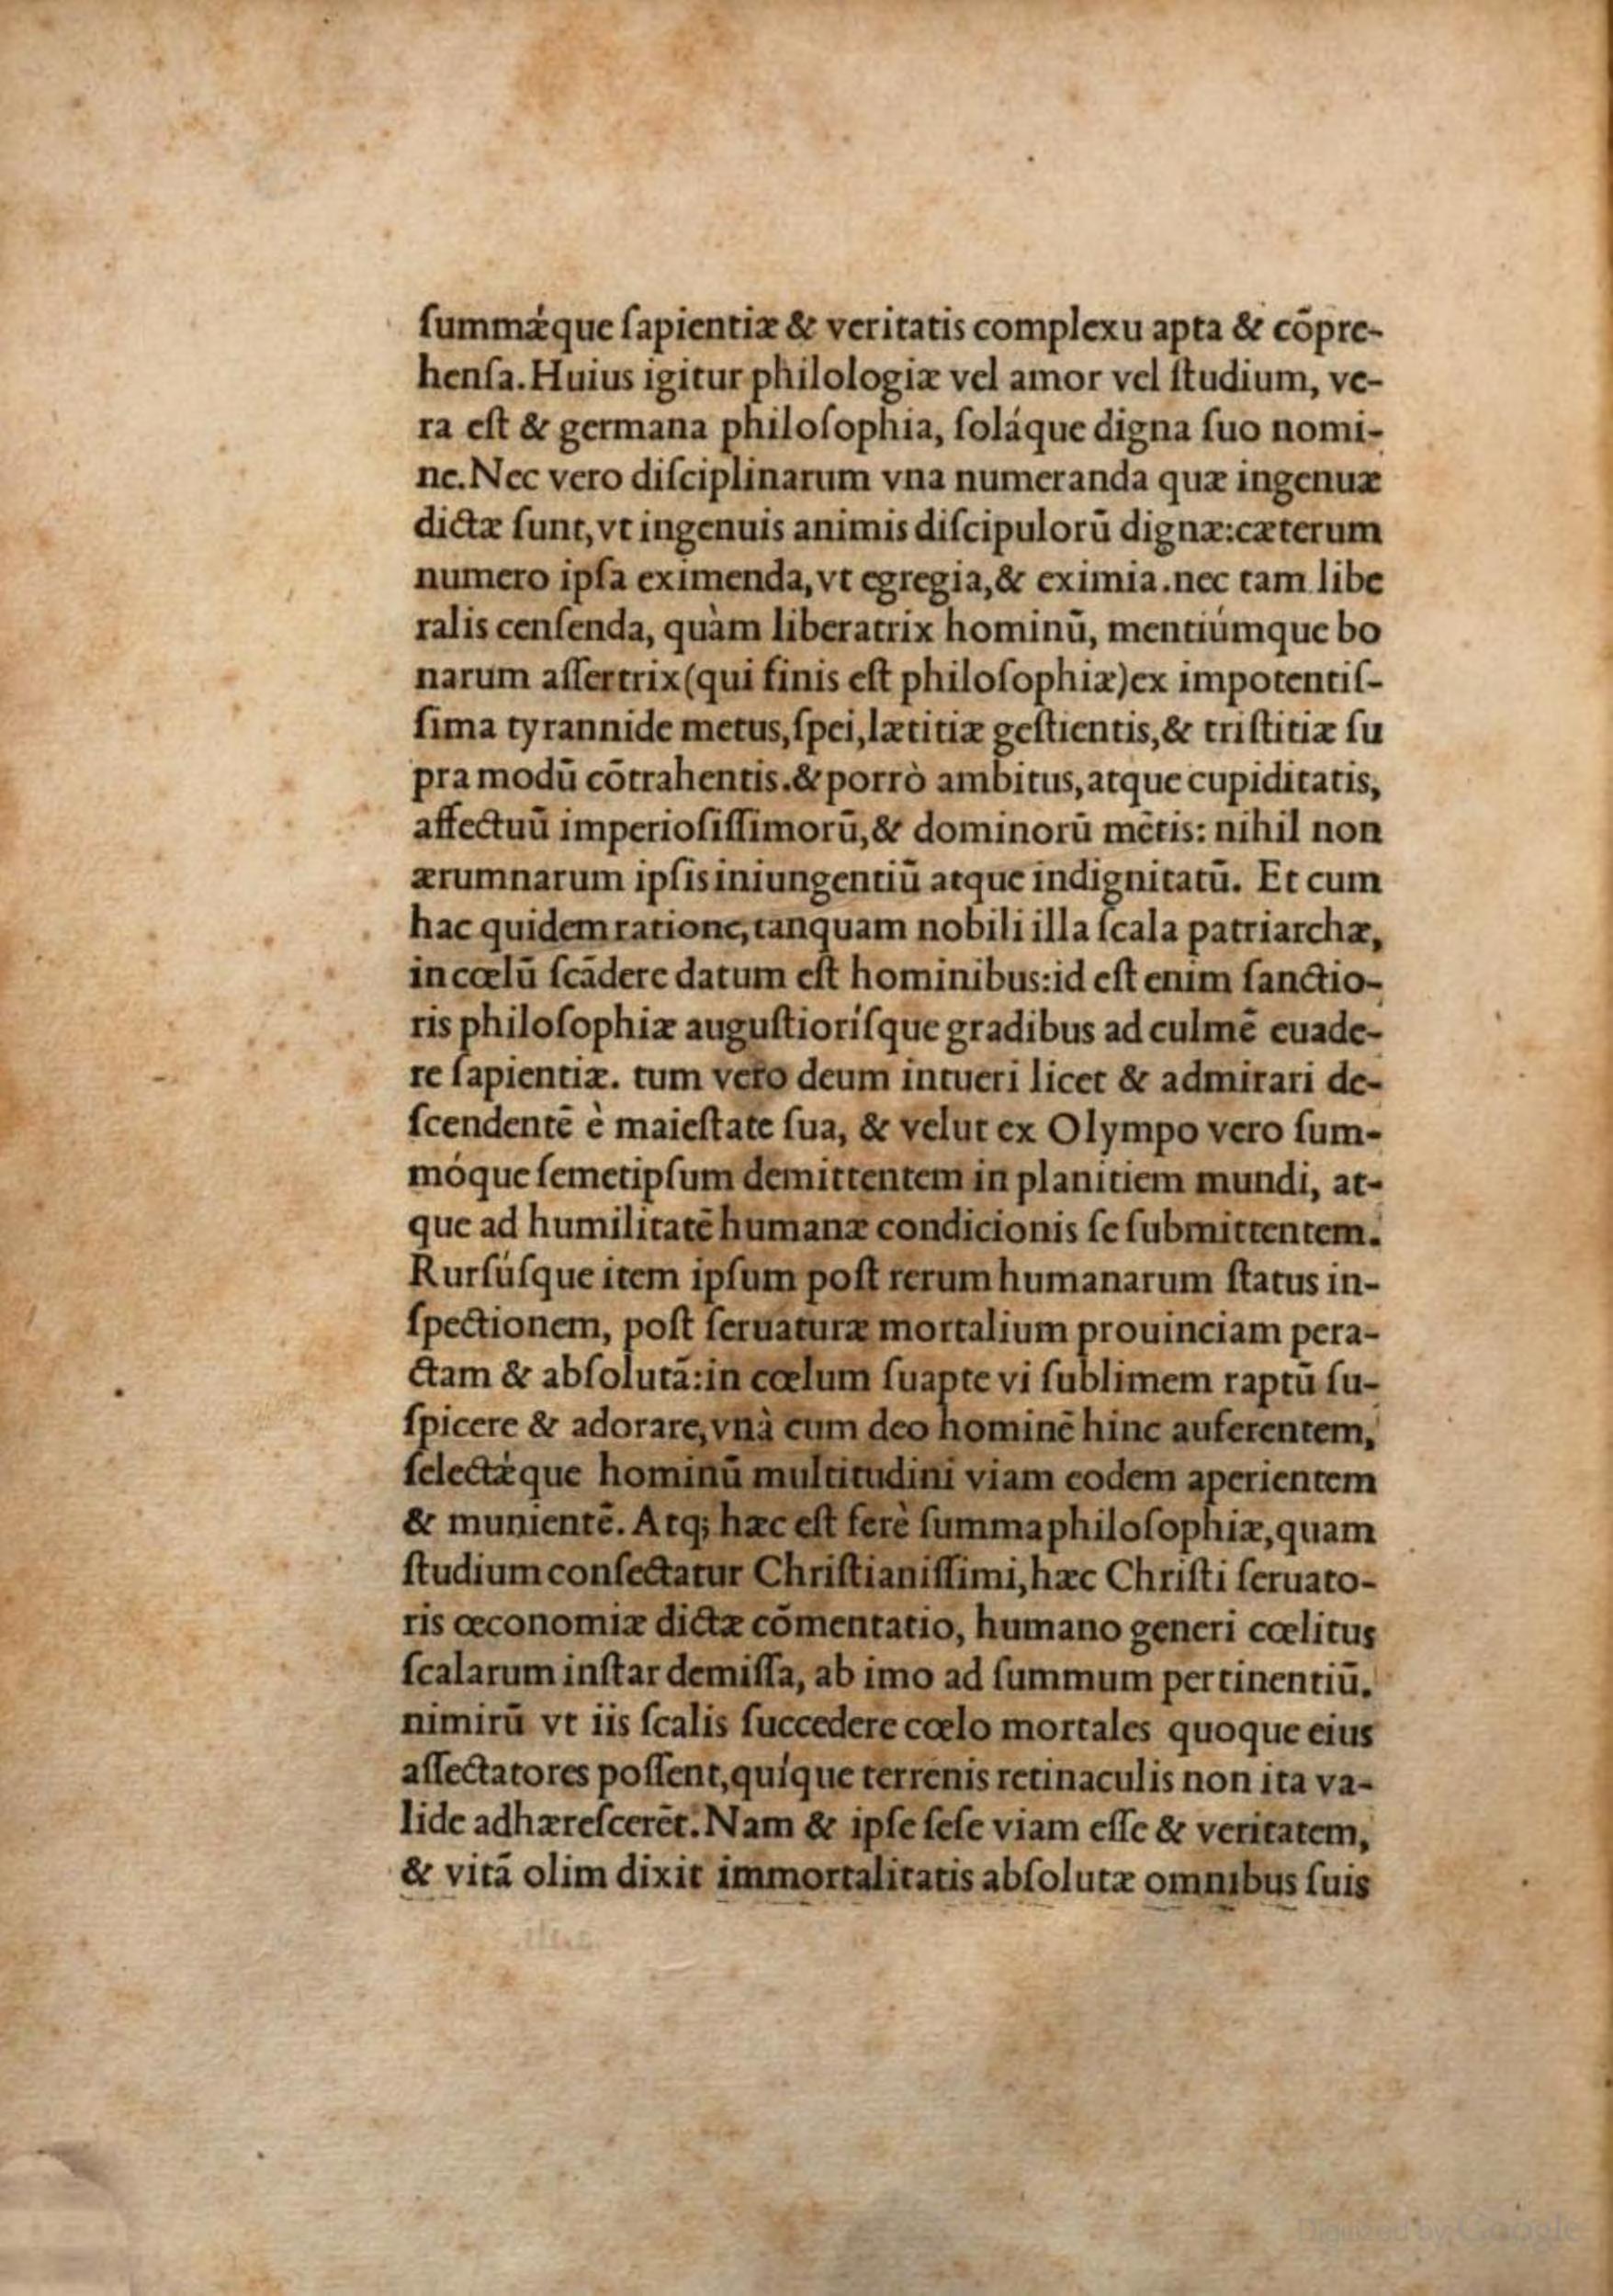 ſummǽque ſapientiæ & veritatis complexu apta & cōpre-
henſa. Huius igitur philologiæ vel amor vel ſtudium, ve-
ra eſt & germana philoſophia, ſoláque digna ſuo nomi-
ne. Nec vero diſciplinarum vna numeranda quæ ingenuæ
dictæ ſunt, vt ingenuis animis diſcipulorū dignæ: cæterum
numero ipſa eximenda, vt egregia, & eximia. nec tam libe
ralis cenſenda, quàm liberatrix hominū, mentiúmque bo
narum aſſertrix (qui finis eſt philoſophiæ) ex impotentiſ-
ſima tyrannide metus, ſpei, lætitiæ geſtientis, & triſtitiæ ſu
pra modū cōtrahentis. & porrò ambitus, atque cupiditatis,
affectuū imperioſiſſimorū, & dominorū mētis: nihil non
ærumnarum ipſis iniungentiū atque indignitatū. Et cum
hac quidem ratione, tanquam nobili illa ſcala patriarchæ,
in cœlū ſcādere datum eſt hominibus: id eſt enim ſanctio-
ris philoſophiæ auguſtioríſque gradibus ad culmē euade-
re ſapientiæ. tum vero deum intueri licet & admirari de-
ſcendentē è maieſtate ſua, & velut ex Olympo vero ſum-
móque ſemetipſum demittentem in planitiem mundi, at-
que ad humilitatē humanæ condicionis ſe ſubmittentem.
Rurſúſque item ipſum poſt rerum humanarum ſtatus in-
ſpectionem, poſt ſeruaturæ mortalium prouinciam pera-
ctam & abſolutā: in cœlum ſuapte vi ſublimem raptū ſu-
ſpicere & adorare, vnà cum deo hominē hinc auferentem,
ſelectǽque hominū multitudini viam eodem aperientem
& munientē. Atq; hæc eſt ferè ſumma philoſophiæ, quam
ſtudium conſectatur Chriſtianiſſimi, hæc Chriſti ſeruato-
ris œconomiæ dictæ cōmentatio, humano generi cœlitus
ſcalarum inſtar demiſſa, ab imo ad ſummum pertinentiū.
nimirū vt iis ſcalis ſuccedere cœlo mortales quoque eius
aſſectatores poſſent, quíque terrenis retinaculis non ita va-
lide adhæreſcerēt. Nam & ipſe ſeſe viam eſſe & veritatem,
& vitā olim dixit immortalitatis abſolutæ omnibus ſuis
Digitized by Google